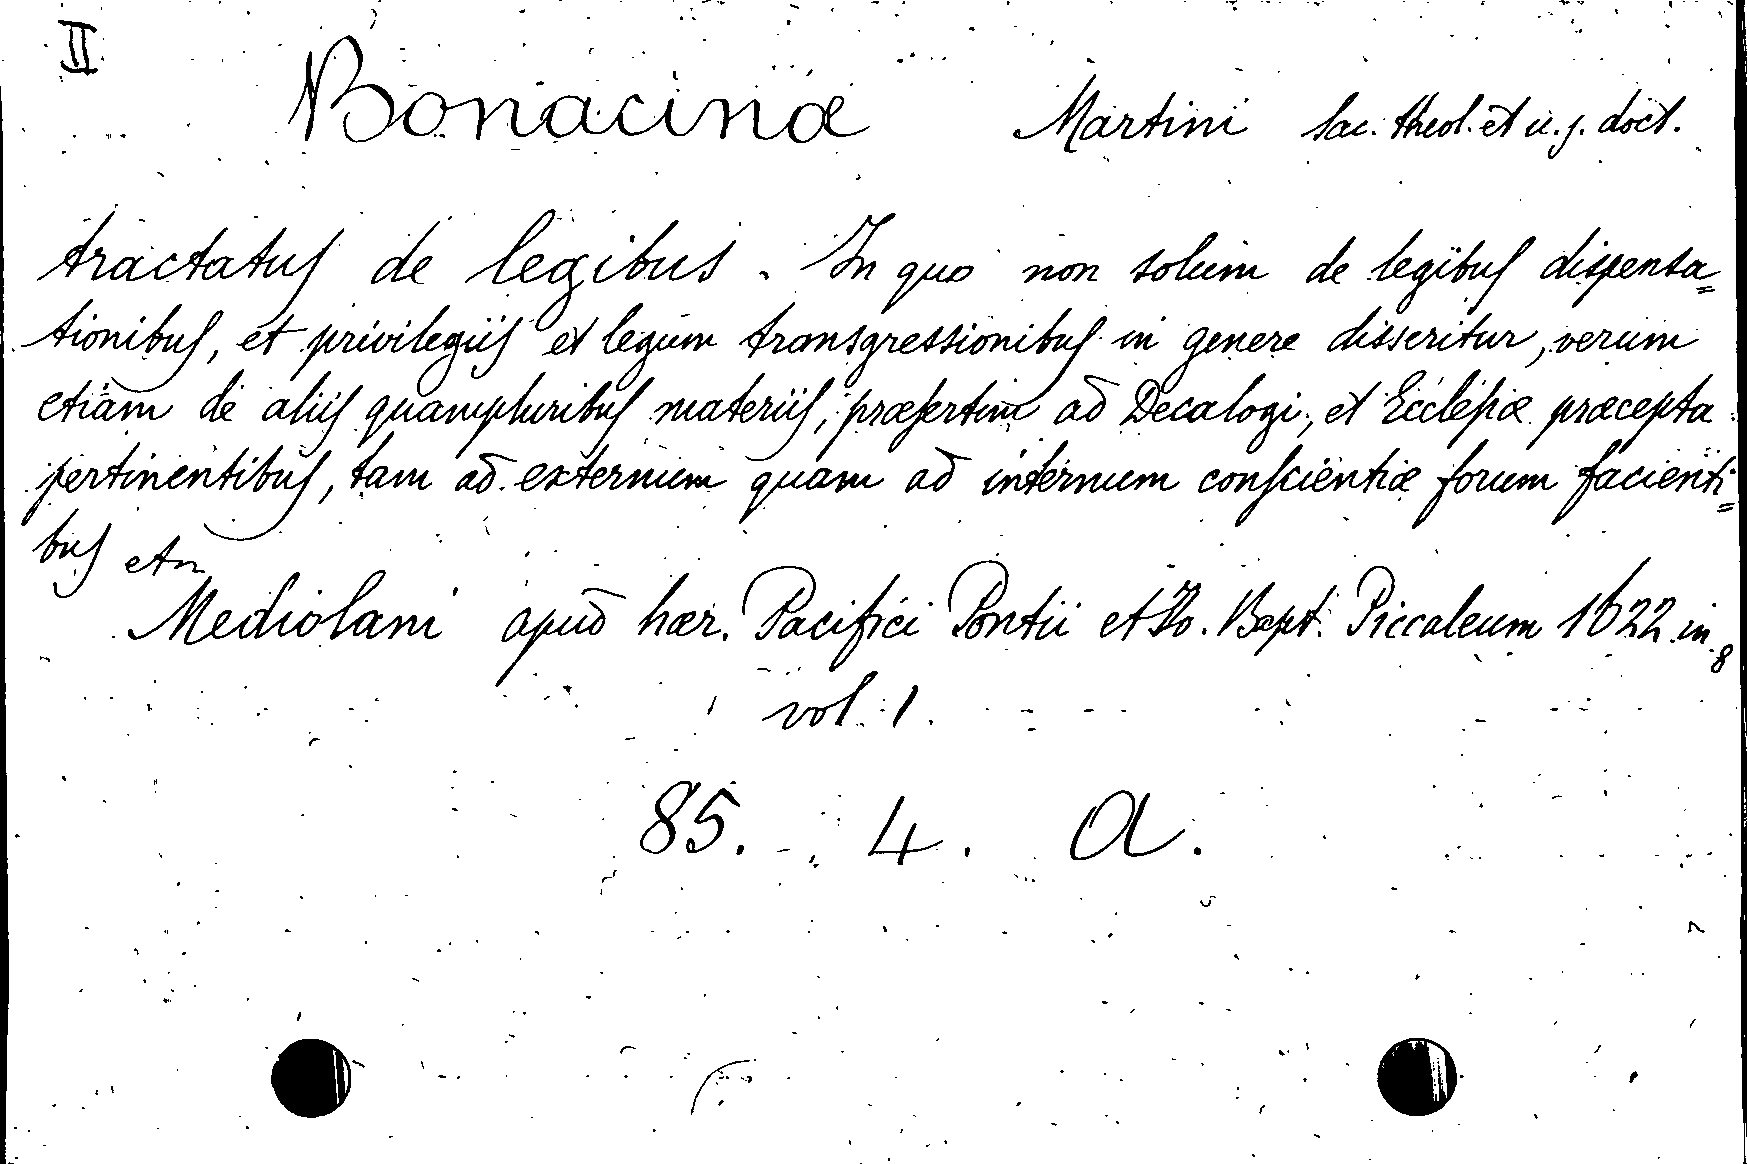 II
Bonacinæ Martini sac. theol. et u. j. doct.
tractatus de legibus. In quo non solum de legibus dispensa=
tionibus, et privilegiis et legum transgressionibus in genere disseritur, verum
etiam de aliis quampluribus materiis, præsertim ad Decalogi, et Ecclesiæ præcepta
pertinentibus, tam ad externum quam ad internum conscientiæ forum facienti=
bus etc
Mediolani apud hær. Pacifici Pontii et Jo. Bapt. Piccaleum 1622 in 8
vol. 1.
85. 4. A.